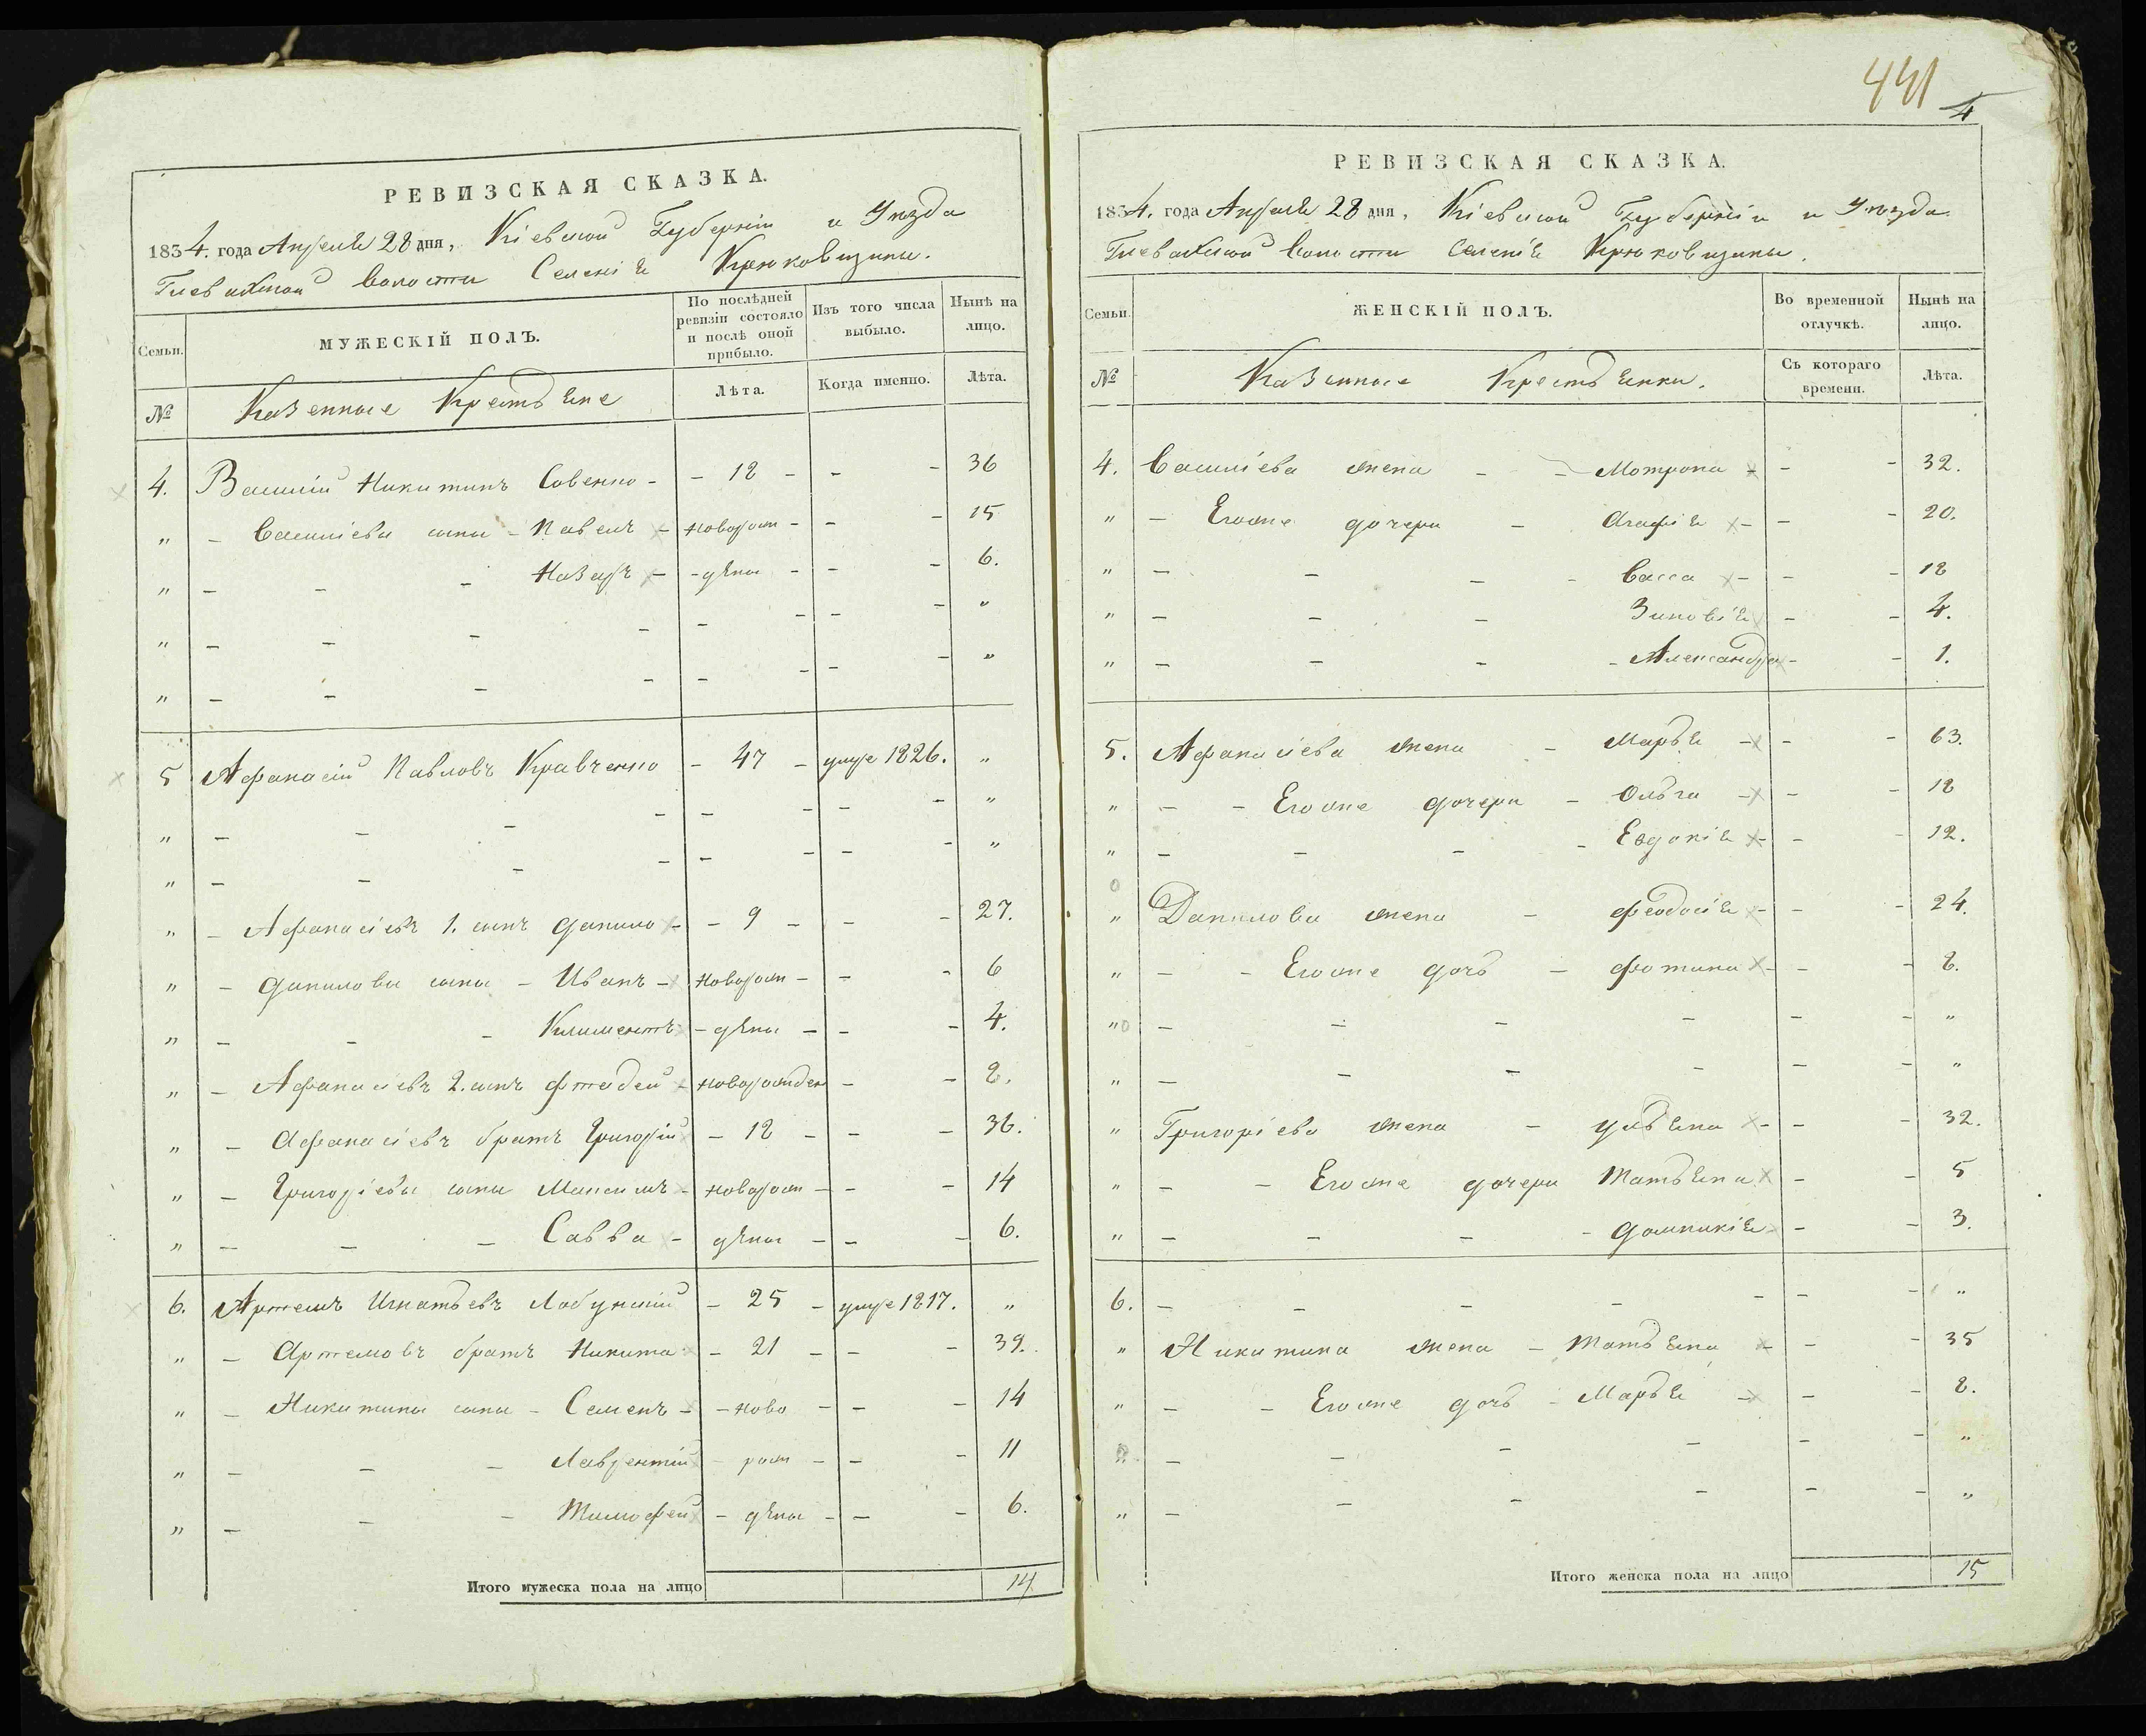 441
4
РЕВИЗСКАЯ СКАЗКА.
1834. года Апреля 28 дня, Кіевской Губерніи и Уезда
Гвоздовской Волости Селенія Крюковщины.
Семьи.
МУЖЕСКІЙ ПОЛЪ.
По послѣдней ревизіи состояло и послѣ оной прибыло.
Изъ того числа выбыло.
Нынѣ на лицо.
№
Казенные Крестьяне
Лѣта.
Когда именно.
Лѣта.
4. Василій Никитинъ Совенко - - 18 - - - 36
„ - Василіевы сыны - Павелъ - новорож - - - 15
„ - - - Назаръ - - дены - - - 6.
„ - - - - - - - - „
„ - - - - - - - - „
5 Афанасій Павловъ Кравченко - 47 - умре 1826. „
„ - - - - - - - - „
„ - - - - - - - - „
„ - Афанасіевъ 1. сынъ Данило - - 9 - - - 27.
„ - Даниловы сыны - Иванъ - новорож - - - 6
„ - - - Климентъ - дены - - - 4.
„ - Афанасіевъ 2. сынъ Фтодей - новорожден - - 8.
„ - Афанасіевъ братъ Григорій - 18 - - - 36.
„ - Григоріевы сыны Максимъ - новорож - - - 14
„ - - - Савва - дены - - - 6.
6. Артемъ Игнатьевъ Лобунскій - 25 - умре 1817. „
„ - Артемовъ братъ Никита - 21 - - - 39.
„ - Никитины сыны - Семенъ - - ново - - - 14
„ - - - Лаврентій - рож - - - 11
„ - - - Тимофей - дены - - - 6.
Итого мужеска пола на лицо 14
РЕВИЗСКАЯ СКАЗКА.
1834. года Апреля 28 дня, Кіевской Губерніи и Уезда
Волости Селенія Крюковщины.
Семьи.
ЖЕНСКІЙ ПОЛЪ.
Во временной отлучкѣ.
Нынѣ на лицо.
№
Казенные Крестьянки.
Съ котораго времени.
Лѣта.
4. Василіева жена - - Мотрона - - - 32.
„ - Егоже дочери - Агафія - - - 20.
„ - - - - Васса - - - 18
„ - - - Зиновія - - 4.
„ - - - - Александра - - 1.
5. Афанасіева жена - Марья - - - 63.
„ - - Егоже дочери - Ольга - - - 18
„ - - - - Евдокія - - - 12.
„ Данилова жена - Феодосія - - - 24.
„ - - Егоже дочь - Фотина - - - 8.
„ - - - - - - „
„ - - - - - - „
„ Григоріева жена - Ульяна - - - 32.
„ - - Егоже дочери Татьяна - - 5
„ - - - - Домникія - - 3.
6. - - - - - - - „
„ Никитина жена - Татьяна - - - 35
„ - - Егоже дочь - Марья - - - 8.
„ - - - - - - „
„ - - - - - - „
Итого женска пола на лицо 15